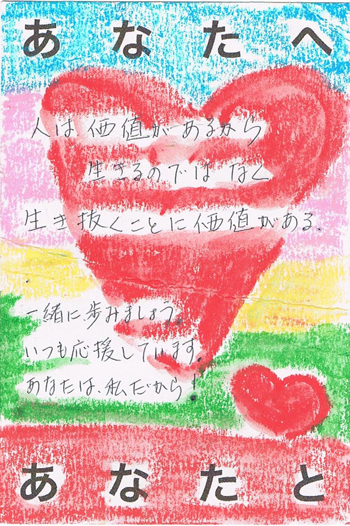 あなたへ
人は価値があるから
生きるのではなく
生き抜くことに価値がある.
一緒に歩みましょう。
いつも応援しています。
あなたは、私だから!
あなたと